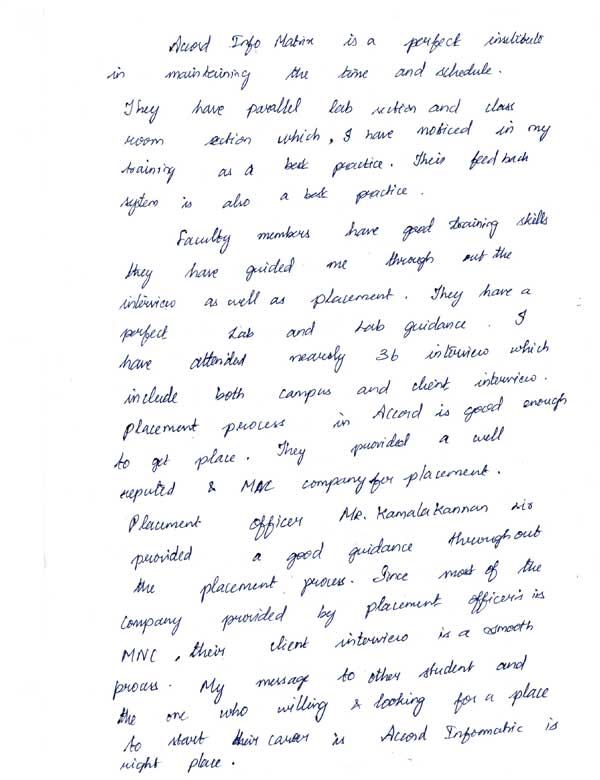 Accord Info Matrix is a perfect institute
in maintaining the time and schedule.
They have parallel lab section and class
room section which, I have noticed in my
training as a best practice. Their feed back
system is also a best practice.
Faculty members have good training skills
they have guided me through out the
interview as well as placement. They have a
perfect Lab and Lab guidance. I
have attended nearsly 36 interview which
include both campus and client interview.
placement process in Accord is good enough
to get place. They provided a well
reputed & MNC company for placement.
Placement officer Mr. Kamala Kannan sir
provided a good guidance throughout
the placement process. Since most of the
company provided by placement officer's is
MNC, their client interview is a smooth
process. My message to other student and
the one who willing & looking for a place
to start their career is Accord Informatric is
right place.